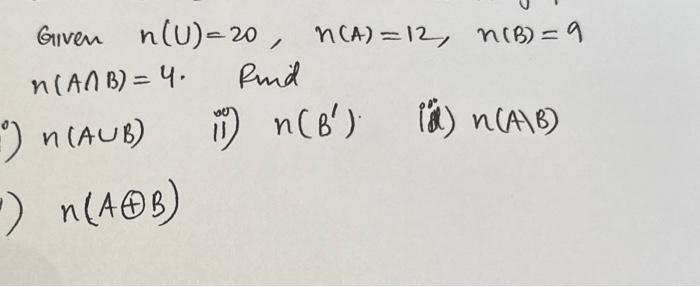 Given n(U)=20, n(A)=12, n(B)=9
n(A∩B)=4. Find
i) n(A∪B) ii) n(B') iii) n(A\B)
) n(A⊕B)